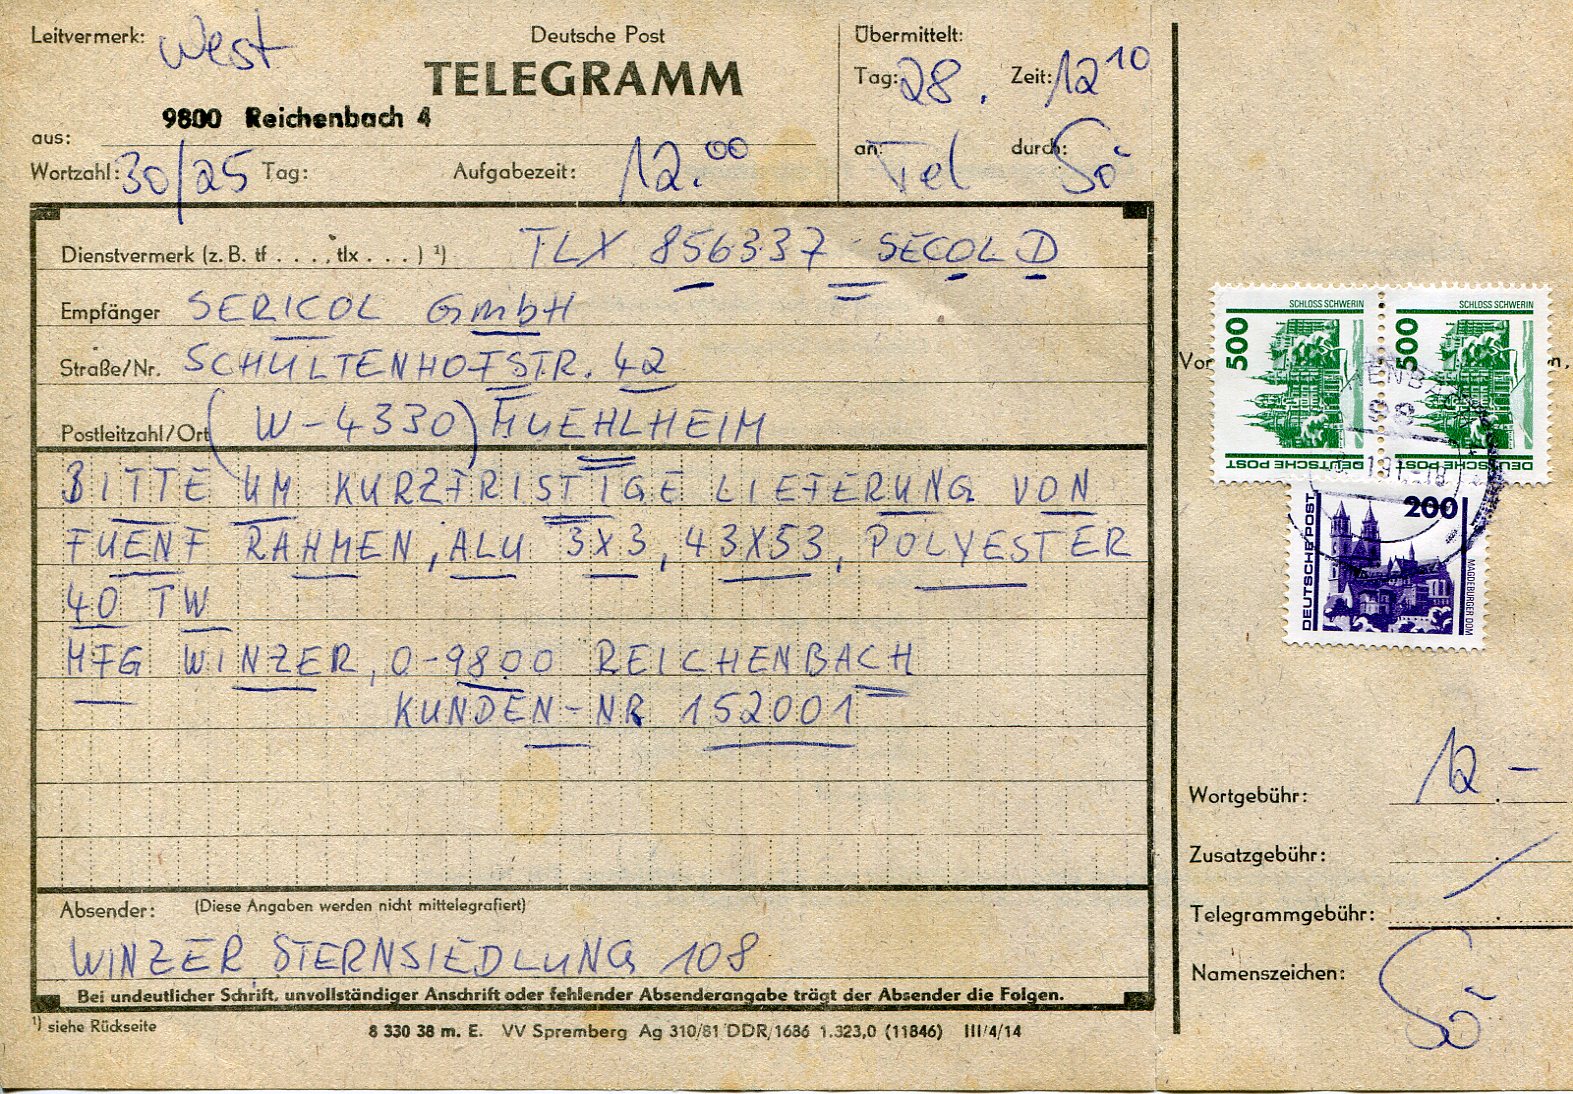 Leitvermerk: West
Deutsche Post
TELEGRAMM
9800 Reichenbach 4
aus:
Wortzahl: 30/25 Tag: Aufgabezeit: 12.00
Übermittelt:
Tag: 28. Zeit: 12 10
an: Tel durch: Sö
Dienstvermerk (z. B. tf . . . ., tlx . . . ) ¹) TLX 856337 SECOL D
Empfänger SERICOL GmbH
Straße/Nr. SCHULTENHOFSTR. 42
Postleitzahl/Ort (W-4330) MUEHLHEIM
BITTE UM KURZFRISTIGE LIEFERUNG VON
FUENF RAHMEN, ALU 3X3, 43X53, POLYESTER
40 TW
MFG WINZER, O-9800 REICHENBACH
KUNDEN-NR 152001
Absender: (Diese Angaben werden nicht mittelegrafiert)
WINZER STERNSIEDLUNG 108
Bei undeutlicher Schrift, unvollständiger Anschrift oder fehlender Absenderangabe trägt der Absender die Folgen.
¹) siehe Rückseite
8 330 38 m. E. VV Spremberg Ag 310/81 DDR/1686 1.323,0 (11846) III/4/14
Vor
SCHLOSS SCHWERIN
500
DEUTSCHE POST
SCHLOSS SCHWERIN
500
DEUTSCHE POST
200
DEUTSCHE POST
MAGDEBURGER DOM
Wortgebühr: 12.-
Zusatzgebühr:
Telegrammgebühr:
Namenszeichen: Sö